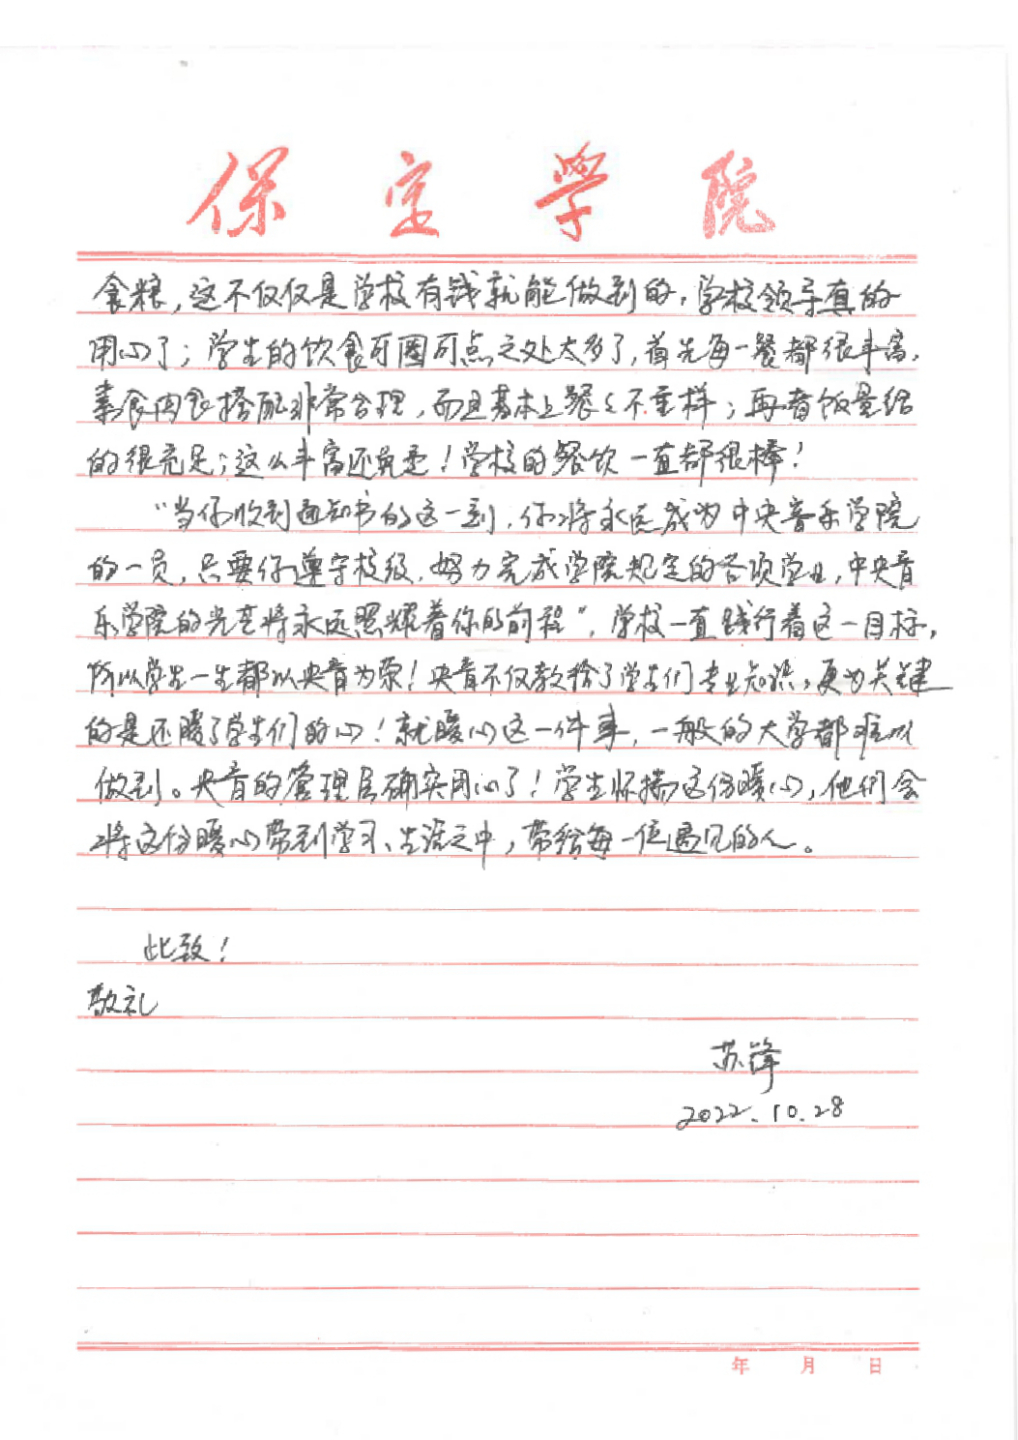 保定学院
食粮，这不仅仅是学校有钱就能做到的，学校领导真的
用心了；学生的饮食可圈可点之处太多了，首先每一餐都很丰富，
素食肉食搭配非常合理，而且基本上餐々不重样；再者饭量给
的很充足；这么丰富还免费！学校的餐饮一直都很棒！
“当你收到通知书的这一刻，你将永远成为中央音乐学院
的一员，只要你遵守校级，努力完成学院规定的各项学业，中央音
乐学院的光芒将永远照耀着你的前程”，学校一直践行着这一目标，
所以学生一生都以央音为荣！央音不仅教给了学生们专业知识，更为关键
的是还暖了学生们的心！就暖心这一件事，一般的大学都难以
做到。央音的管理层确实用心了！学生怀揣这份暖心，他们会
将这份暖心带到学习、生活之中，带给每一位遇见的人。
此致！
敬礼
苏锋
2022.10.28
年 月 日